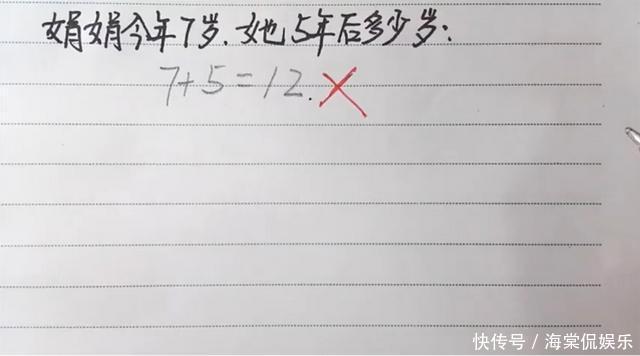 娟娟今年7岁.她5年后多少岁:
7+5=12.
快传号/海棠侃娱乐